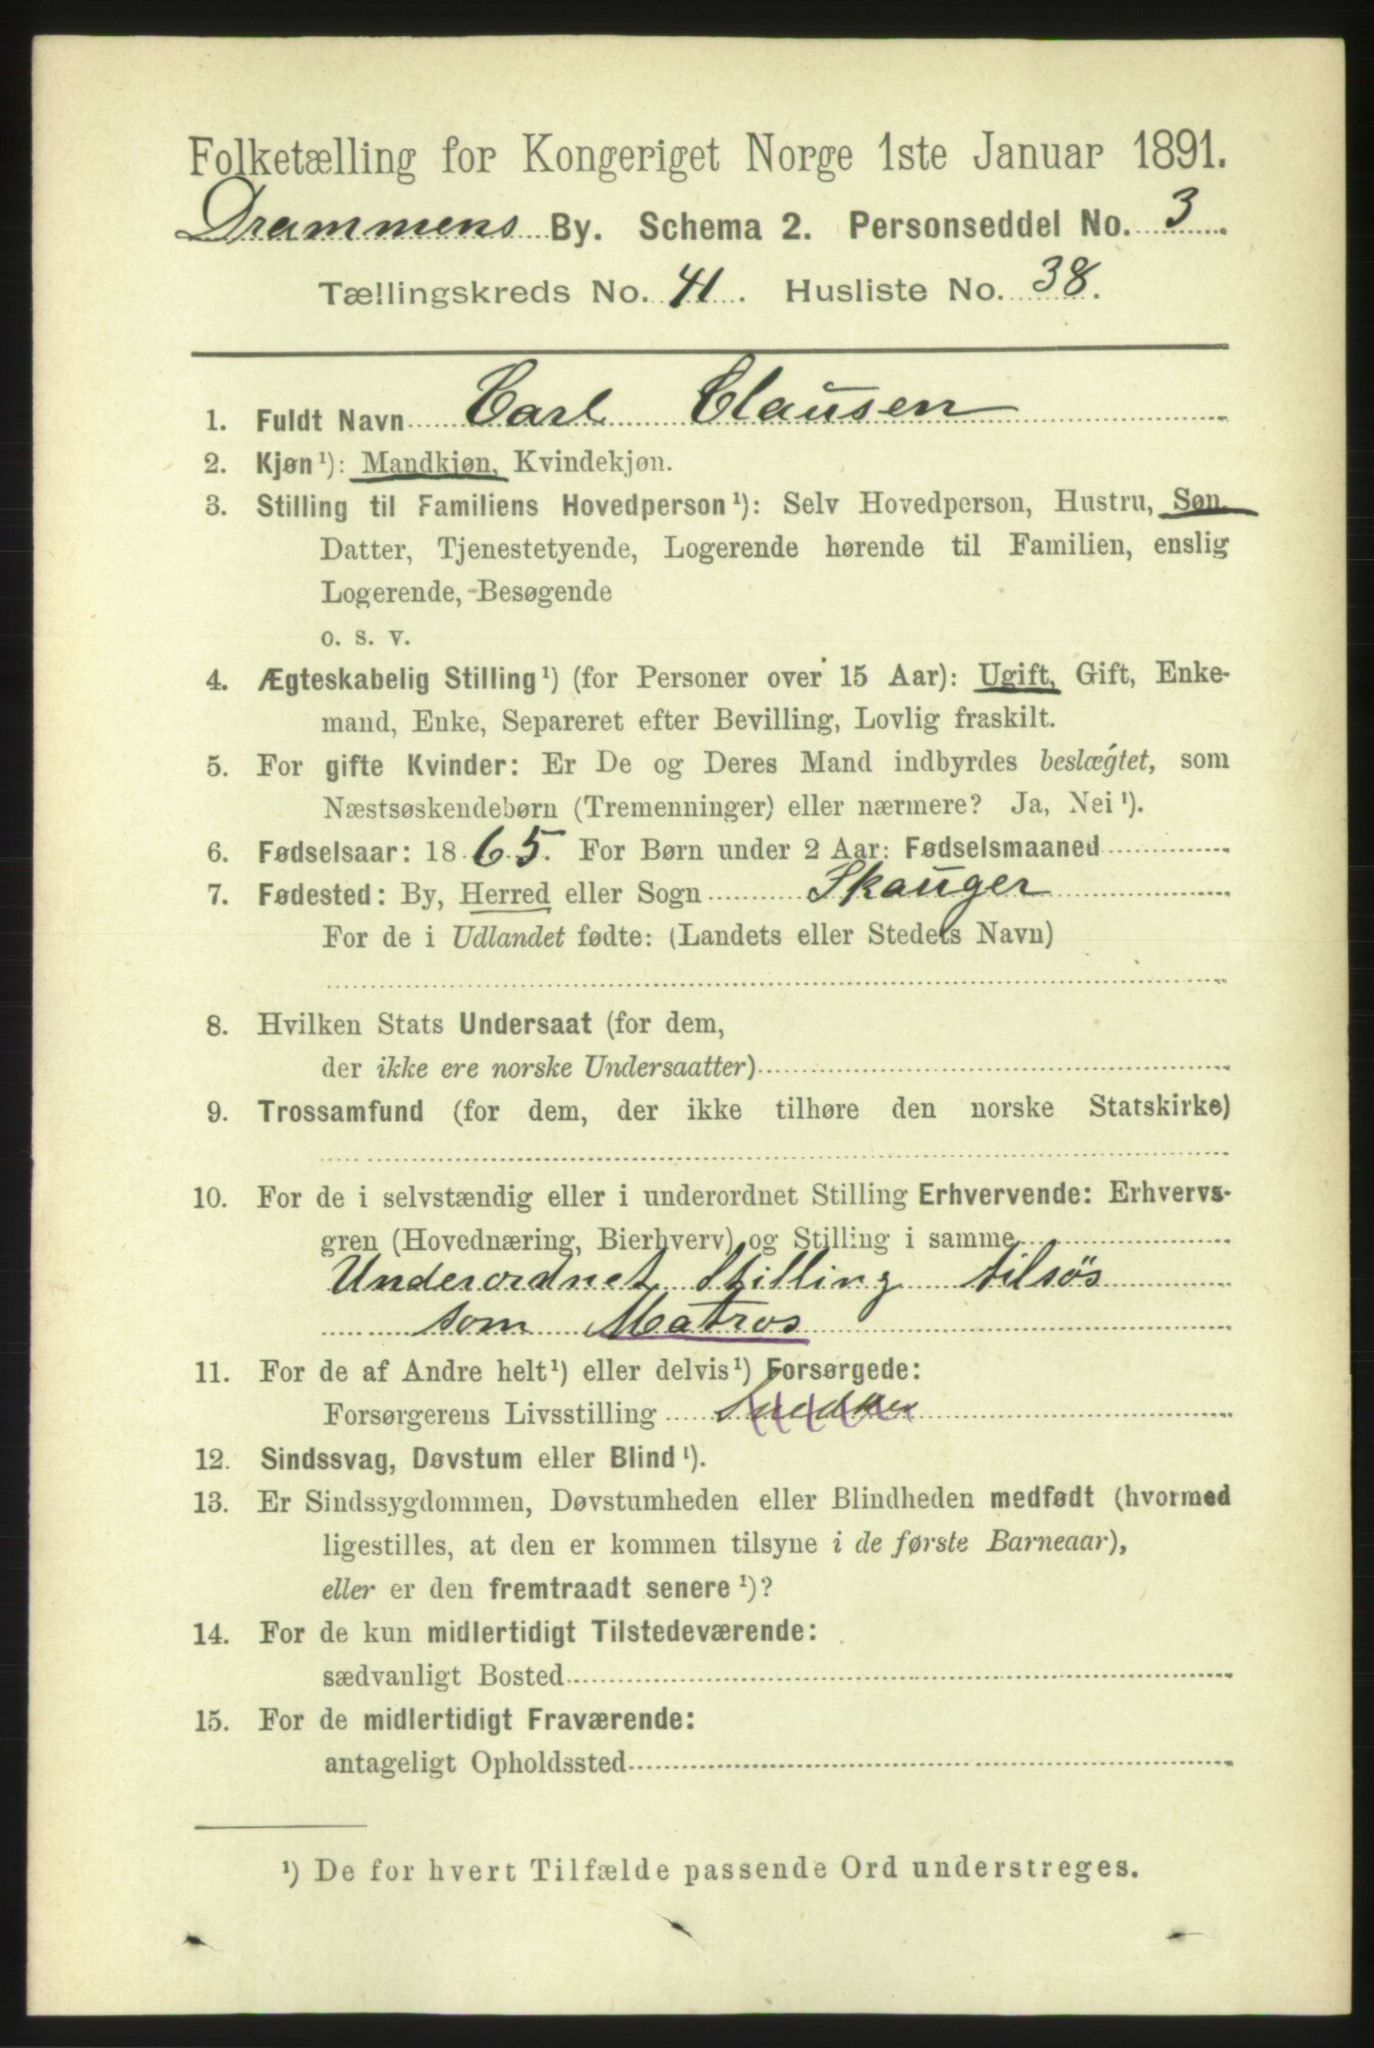 Folketælling for Kongeriget Norge 1ste Januar 1891.
Drammens By. Schema 2. Personseddel No. 3
Tællingskreds No. 41. Husliste No. 38.
1. Fuldt Navn Carl Clausen
2. Kjøn¹): Mandkjøn, Kvindekjøn.
3. Stilling til Familiens Hovedperson¹): Selv Hovedperson, Hustru, Søn,
Datter, Tjenestetyende, Logerende hørende til Familien, enslig
Logerende, Besøgende
o. s. v.
4. Ægteskabelig Stilling¹) (for Personer over 15 Aar): Ugift, Gift, Enke-
mand, Enke, Separeret efter Bevilling, Lovlig fraskilt.
5. For gifte Kvinder: Er De og Deres Mand indbyrdes beslægtet, som
Næstsøskendebørn (Tremenninger) eller nærmere? Ja, Nei¹).
6. Fødselsaar: 1865. For Børn under 2 Aar: Fødselsmaaned
7. Fødested: By, Herred eller Sogn Skauger
For de i Udlandet fødte: (Landets eller Stedets Navn)
8. Hvilken Stats Undersaat (for dem,
der ikke ere norske Undersaatter)
9. Trossamfund (for dem, der ikke tilhøre den norske Statskirke)
10. For de i selvstændig eller i underordnet Stilling Erhvervende: Erhvervs-
gren (Hovednæring, Bierhverv) og Stilling i samme
Underordnet Stilling tilsøs
som Matros
11. For de af Andre helt¹) eller delvis¹) Forsørgede:
Forsørgerens Livsstilling Snedker
12. Sindssvag, Døvstum eller Blind¹).
13. Er Sindssygdommen, Døvstumheden eller Blindheden medfødt (hvormed
ligestilles, at den er kommen tilsyne i de første Barneaar),
eller er den fremtraadt senere¹)?
14. For de kun midlertidigt Tilstedeværende:
sædvanligt Bosted
15. For de midlertidigt Fraværende:
antageligt Opholdssted
¹) De for hvert Tilfælde passende Ord understreges.